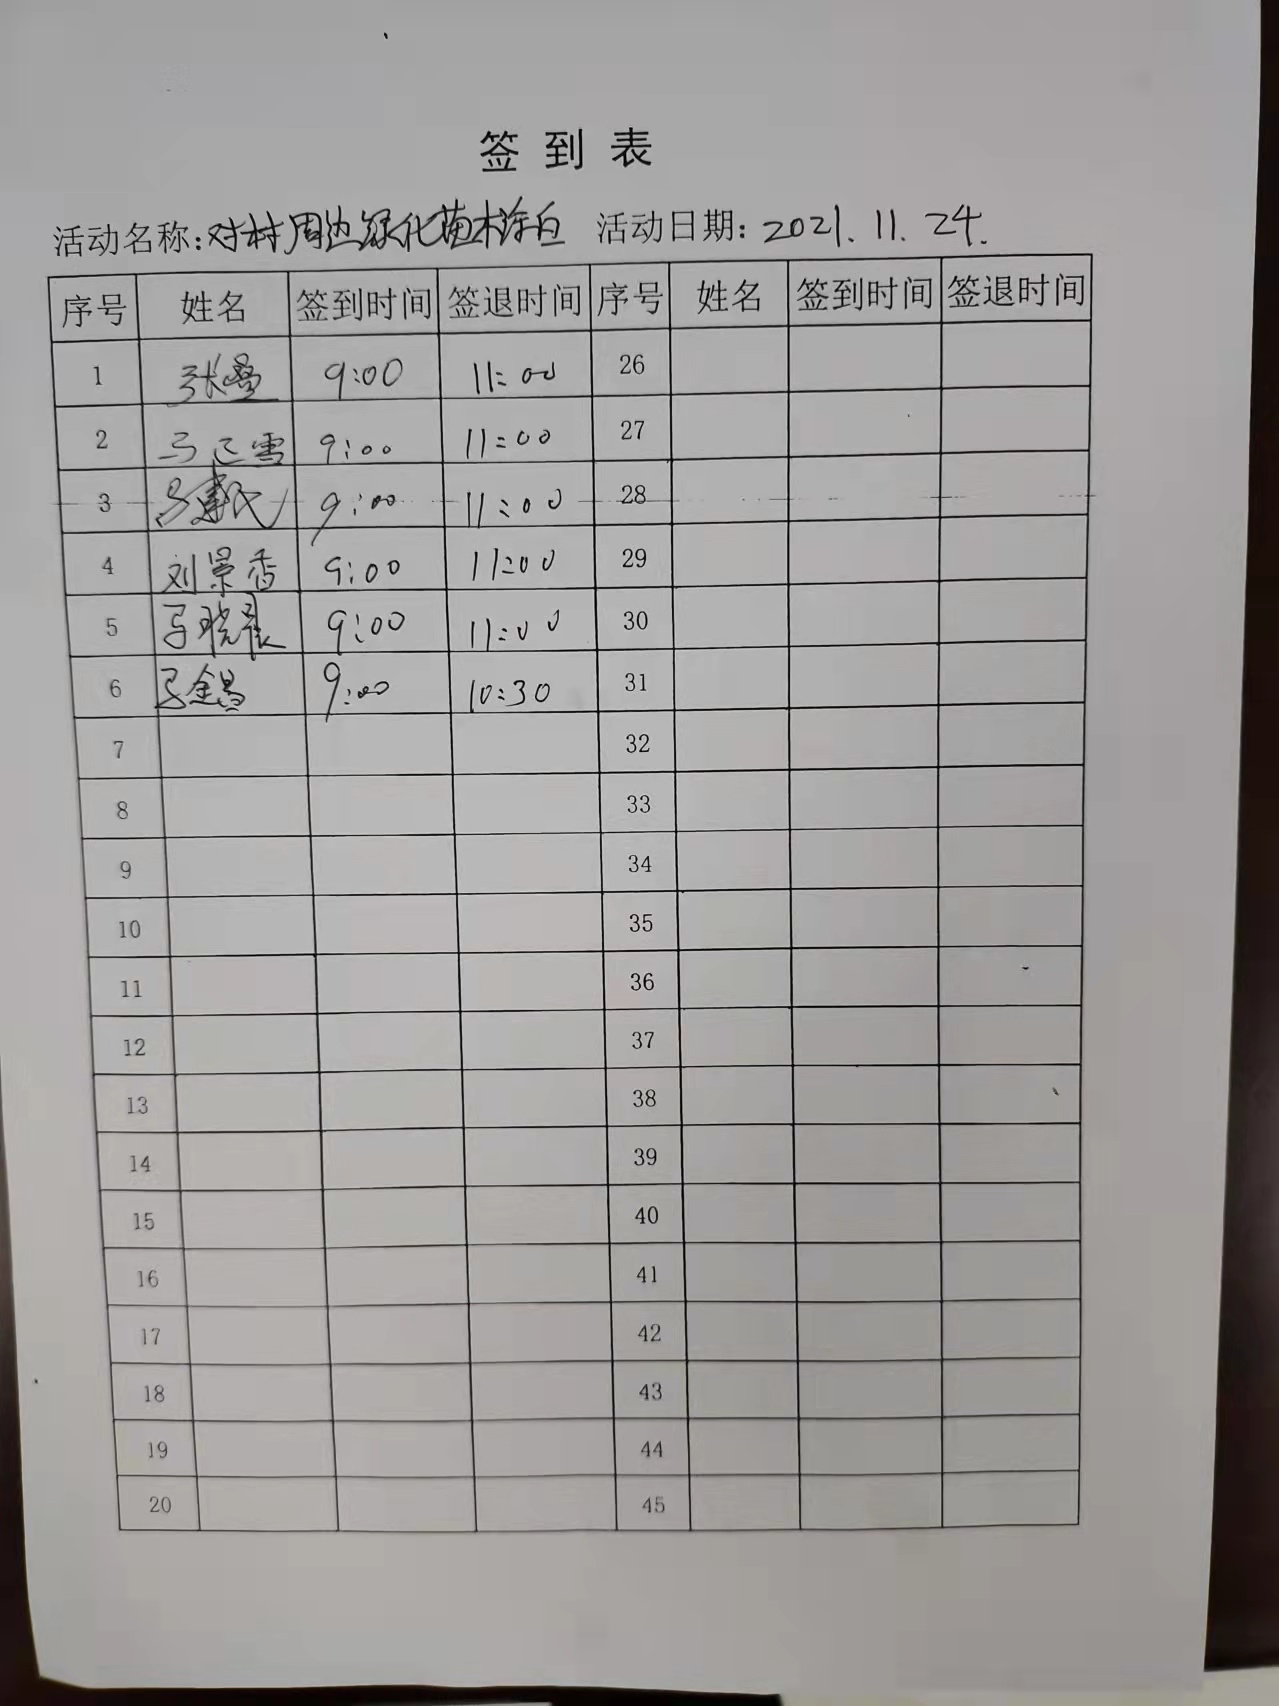 签到表
活动名称:对村周边绿化苗木涂白 活动日期:2021.11.24.
序号 姓名 签到时间 签退时间 序号 姓名 签到时间 签退时间
1 张曼 9:00 11:00 26
2 马正雪 9:00 11:00 27
3 9:00 11:00 28
4 刘景香 9:00 11:00 29
5 马晓晨 9:00 11:00 30
6 马金昌 9:00 10:30 31
7 32
8 33
9 34
10 35
11 36
12 37
13 38
14 39
15 40
16 41
17 42
18 43
19 44
20 45